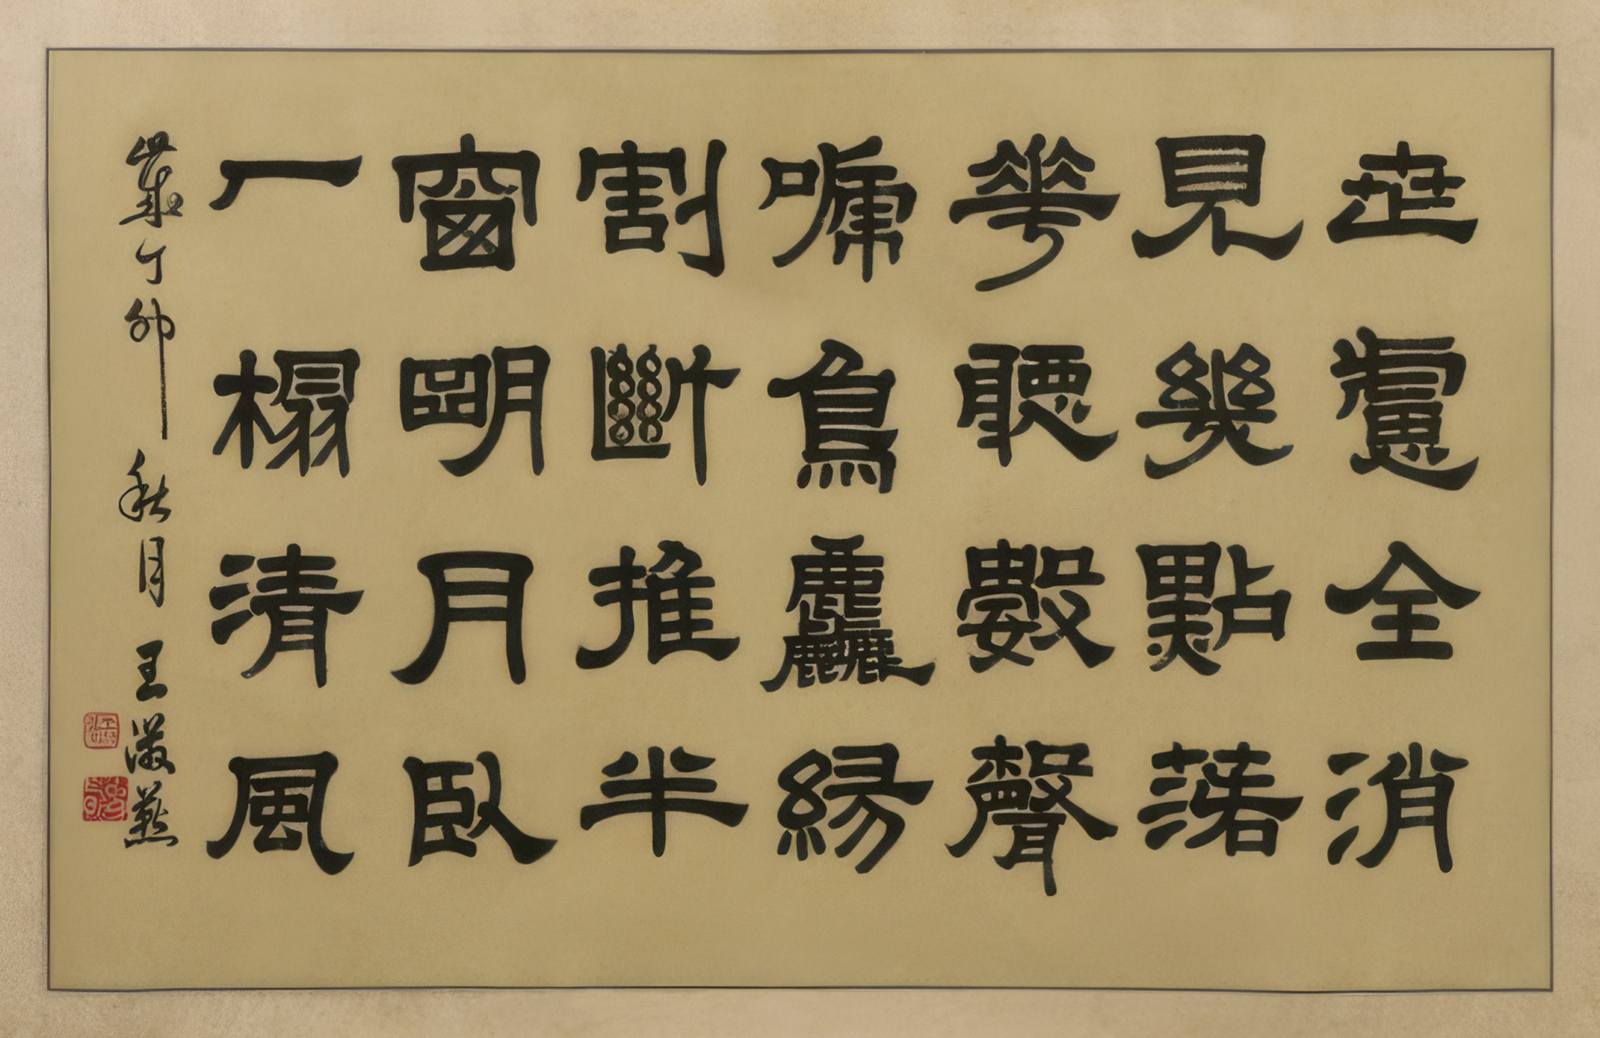 世慮全消
見幾點落
華聽數聲
啼鳥塵緣
割斷推半
窗明月臥
一榻清風
歲丁卯秋月王